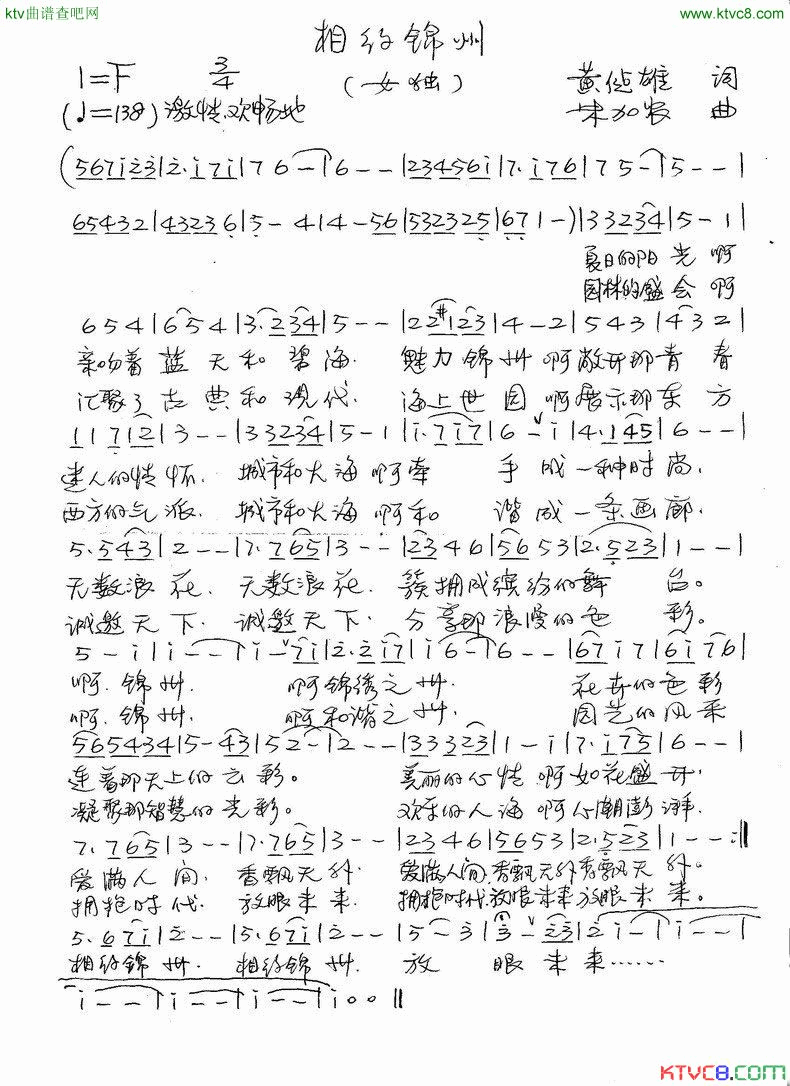 ktv曲谱查吧网
www.ktvc8.com
相约锦州
1=F 3/4
(女独)
黄 雄 词
(♩=138)激情、欢畅地
朱加农 曲
(567i23|2·i7i|76-|6--|23456i|7·i76|75-|5--|
65432|43236|5-4|4-56|532325|671-)|33234|5-1|
夏日的阳光啊
园林的盛会啊
654|654|3·234|5--|22#123|4-2|543|432|
亲吻着蓝天和碧海. 魅力锦州啊敞开那青春
汇聚了古典和现代. 海上世园啊展示那东方
11712|3--|33234|5-1|i·7i7|6-i|4·145|6--|
迷人的情怀. 城市和大海啊牵手成一种时尚.
西方的气派. 城市和大海啊和谐成一条画廊.
5·543|2--|7·765|3--|2346|5653|2·523|1--|
无数浪花. 无数浪花. 簇拥成缤纷的舞台。
诚邀天下. 诚邀天下. 分享那浪漫的色彩。
5-i|i--|i-7i|2·2i7|i6-|6--|67i7|6i76|
啊.锦州. 啊锦绣之州. 花卉的色彩
啊.锦州. 啊和谐之州. 园艺的风采
565434|5-43|52-|2--|33323|1-i|7·i75|6--|
连着那天上的云彩。 美丽的心情啊如花盛开.
凝聚那智慧的光彩。 欢乐的人海啊心潮澎湃.
7·765|3--|7·765|3--|2346|5653|2·523|1--:||
爱满人间. 香飘天外. 爱满人间.香飘天外香飘天外。
拥抱时代. 放眼未来. 拥抱时代.放眼未来放眼未来。
5·67i|2--|5·67i|2--|5-3|3-23|2i-|i--|
相约锦州. 相约锦州. 放眼未来……
i--|i--|i--|i00||
KTVC8.com